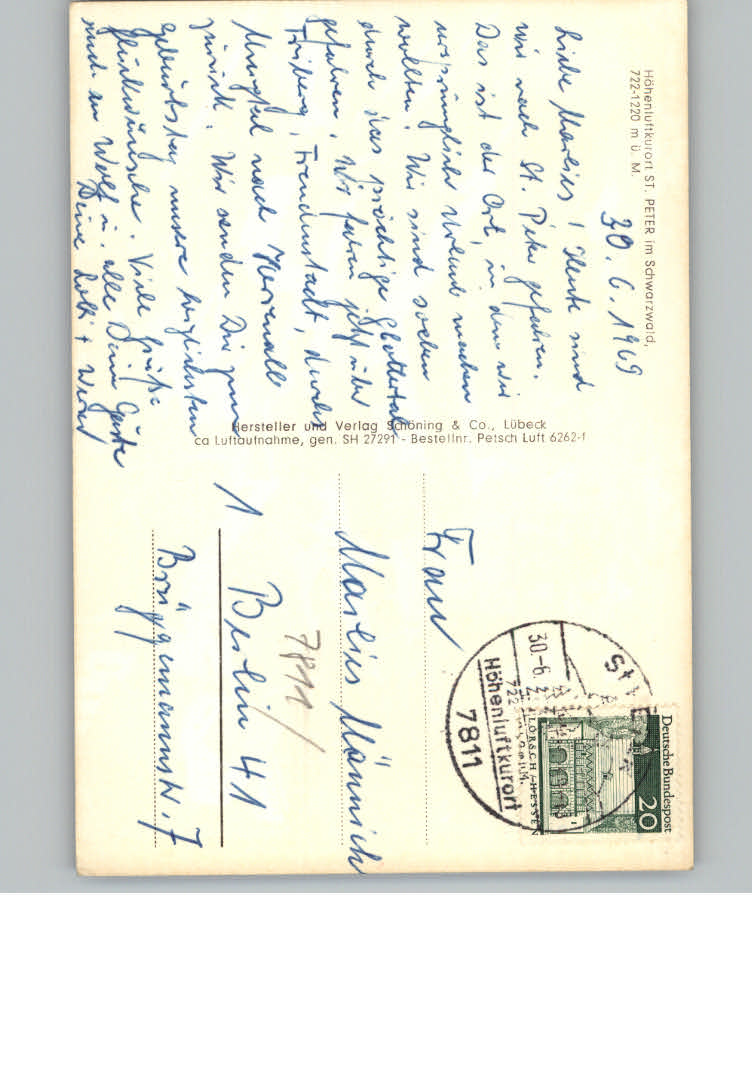 Höhenluftkurort ST. PETER im Schwarzwald,
722-1220 m ü. M.
30. 6. 1969
Liebe Marlies! Heute sind
wir nach St. Peter gefahren.
Das ist der Ort, in dem wir
ursprünglich Urlaub machen
wollten. Wir sind soeben
durch das prächtige Glottertal
gefahren. Wir fahren jetzt über
Triberg, Freudenstadt, durchs
Murgtal nach Herrenalb
zurück. Wir senden Dir zum
Geburtstag unsere herzlichsten
Glückwünsche. Viele Grüße
auch an Wolf u. alle Deine Gäste
Deine
Hersteller und Verlag Schöning & Co., Lübeck
ca Luftaufnahme, gen. SH 27291 - Bestellnr. Petsch Luft 6262-f
Deutsche Bundespost
20
LORSCH/HESSEN
St
30.-6.
722
Höhenluftkurort
7811
Frau
Marlies Männich
7811/
1 Berlin 41
Brüggemannstr. 7